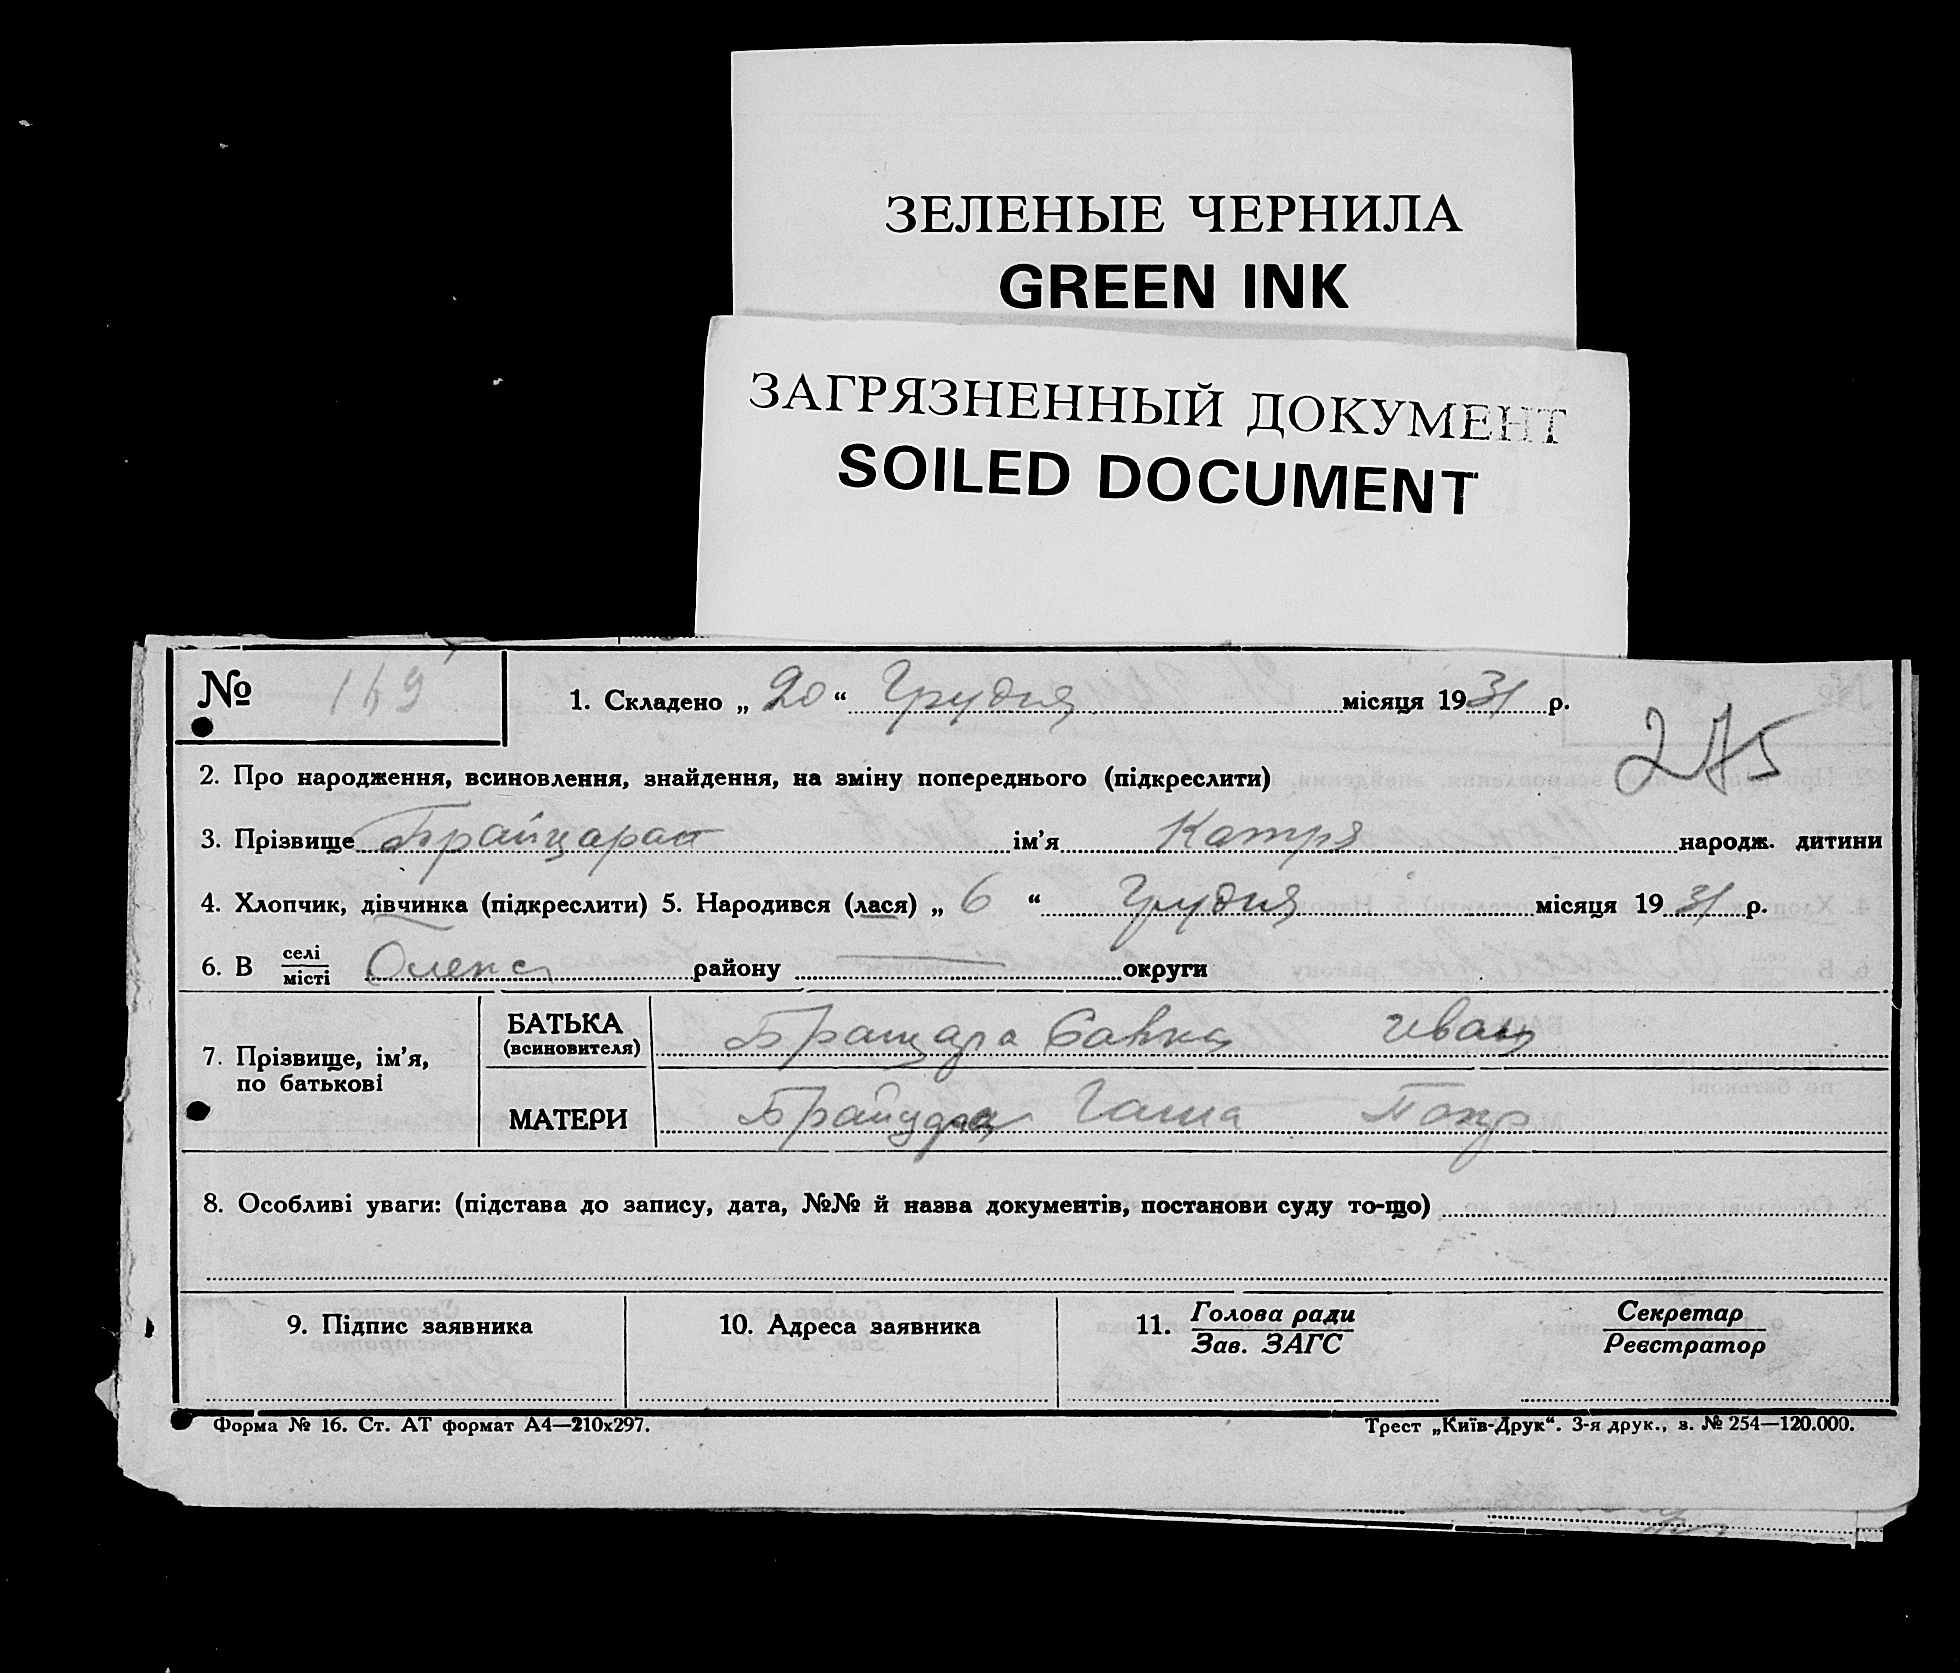 ЗЕЛЕНЫЕ ЧЕРНИЛА
GREEN INK
ЗАГРЯЗНЕННЫЙ ДОКУМЕНТ
SOILED DOCUMENT
№ 149
1. Складено „ 20 “ Грудня місяця 1931 р.
275
2. Про народження, всиновлення, знайдення, на зміну попереднього (підкреслити)
3. Прізвище ім'я Катря народж. дитини
4. Хлопчик, дівчинка (підкреслити) 5. Народився (лася) „ 6 “ Грудня місяця 1931 р.
6. В селі/місті району округи
7. Прізвище, ім'я, по батькові
БАТЬКА
(всиновителя)
Савка Иван
МАТЕРИ
8. Особливі уваги: (підстава до запису, дата, №№ й назва документів, постанови суду то-що)
9. Підпис заявника
10. Адреса заявника
11. Голова ради
Зав. ЗАГС
Секретар
Реєстратор
Форма № 16. Ст. АТ формат А4—210х297.
Трест „Київ-Друк“. 3-я друк., з. № 254—120.000.